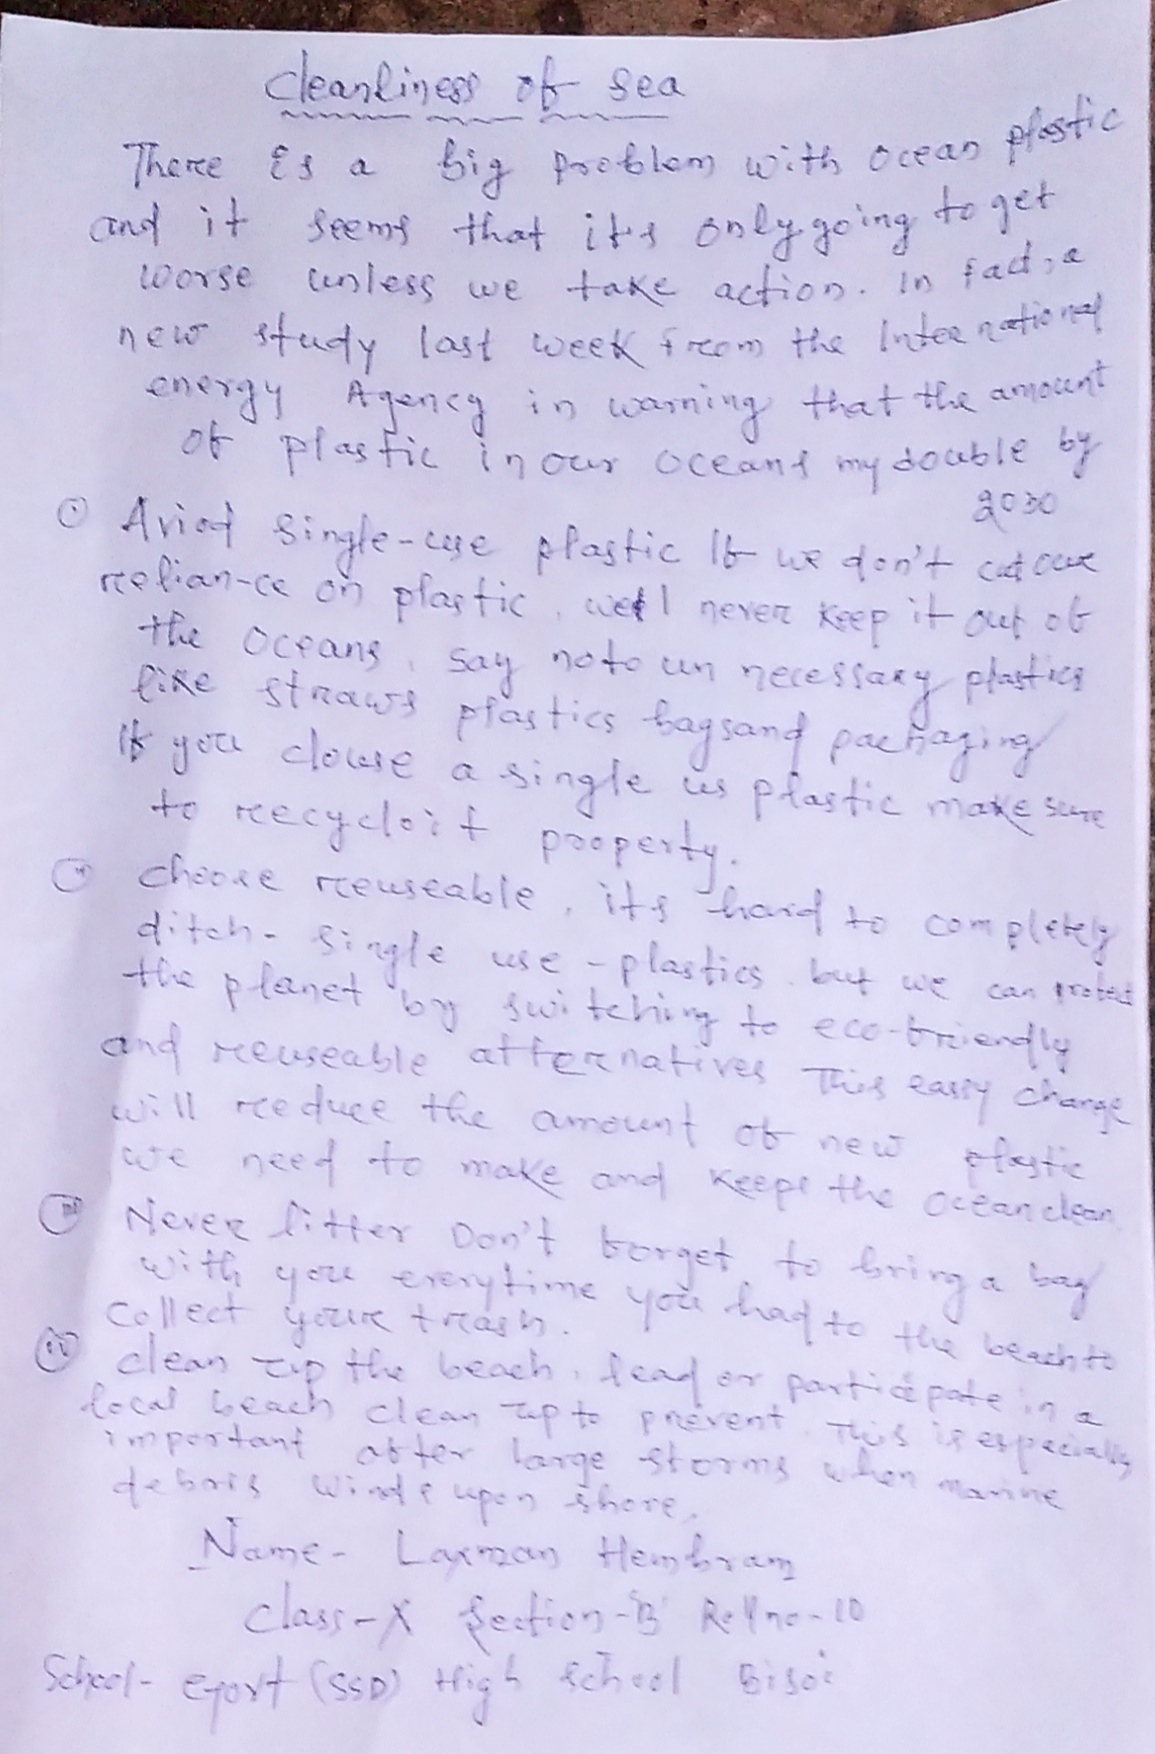 Cleanliness of Sea
There is a big problem with ocean plastic
and it seems that it's only going to get
worse unless we take action. In fact, a
new study last week from the International
energy Agency in warning that the amount
of plastic in our oceans my double by
2030
(i) Aviod single-use plastic If we don't cut our
relian-ce on plastic, well never keep it out of
the oceans, say no to un necessary plastics
like straws plastics bagsand packaging
If you clouse a single us plastic make sure
to recycloit property.
(ii) choose reuseable, its hard to completely
ditch- single use-plastics. but we can protect
the planet by switching to eco-friendly
and reuseable alternatives This eassy change
will reduce the amount of new plastic
we need to make and keeps the ocean clean.
(iii) Never litter Don't forget to bring a bag
with you everytime you had to the beach to
collect your trash.
(iv) clean up the beach, lead or participate in a
local beach clean up to prevent. This is especially
important after large storms when marine
debris winds upon shore.
Name- Laxman Hembram
Class-X Section-'B' Roll no-10
School- (SSD) High School Bisoi